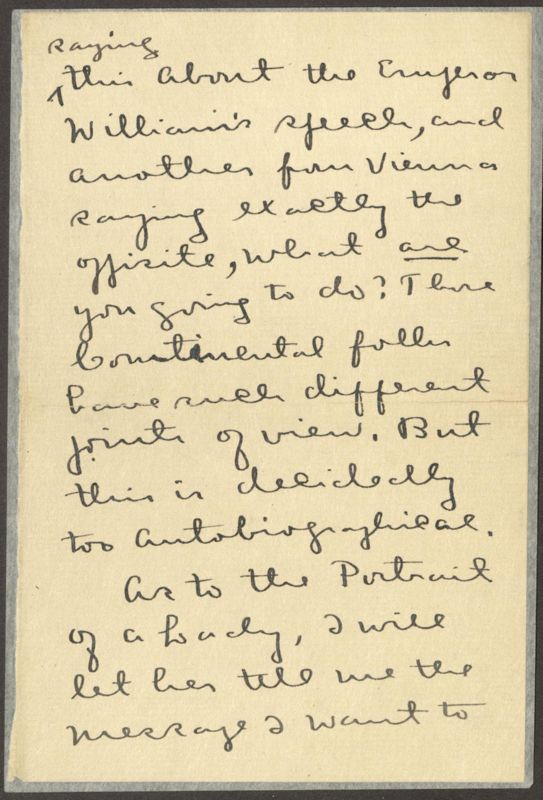 saying
this about the Emperor
William's speech, and
another from Vienna
saying exactly the
opposite, what are
you going to do? Those
Continental folks
have such different
points of view. But
this is decidedly
too autobiographical.
As to the Portrait
of a Lady, I will
let her tell me the
message I want to